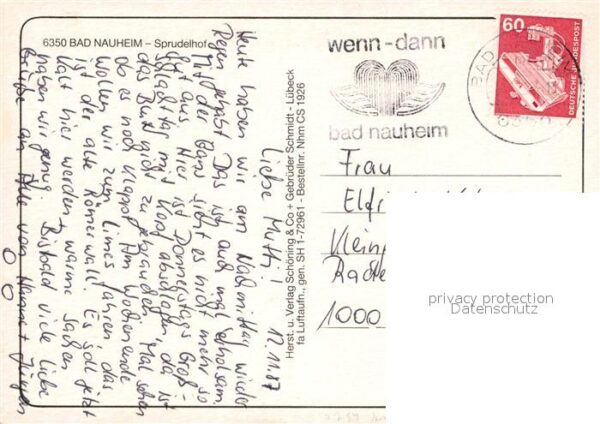 6350 BAD NAUHEIM – Sprudelhof
12.11.87
Liebe Mutti!
Heute haben wir am Nachmittag wieder
Regen gehabt. Das ist auch mal erholsam.
Mit der Bahn sieht es nicht mehr so
gut aus. Hier ist Donnerstags Groß-
das Bett nicht zu gebrauchen. Mal sehen
ob es noch klappt. Am Wochenende
wollen wir zum Limes fahren, das
ist der alte Römerwall. Es soll jetzt
kalt hier werden, warme Sachen
haben wir genug. Bis bald viele liebe
Grüße an Alle von Jürgen
Herst. u. Verlag Schöning & Co + Gebrüder Schmidt - Lübeck
fa Luftaufn., gen. SH 1-72961 - Bestellnr. Nhm CS 1926
wenn-dann
bad nauheim
BAD
60
DEUTSCHE BUNDESPOST
Frau
1000
privacy protection
Datenschutz